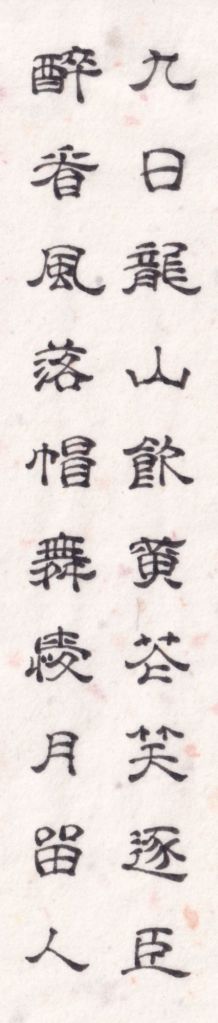 九日龍山飲黃花笑逐臣
醉看風落帽舞愛月留人